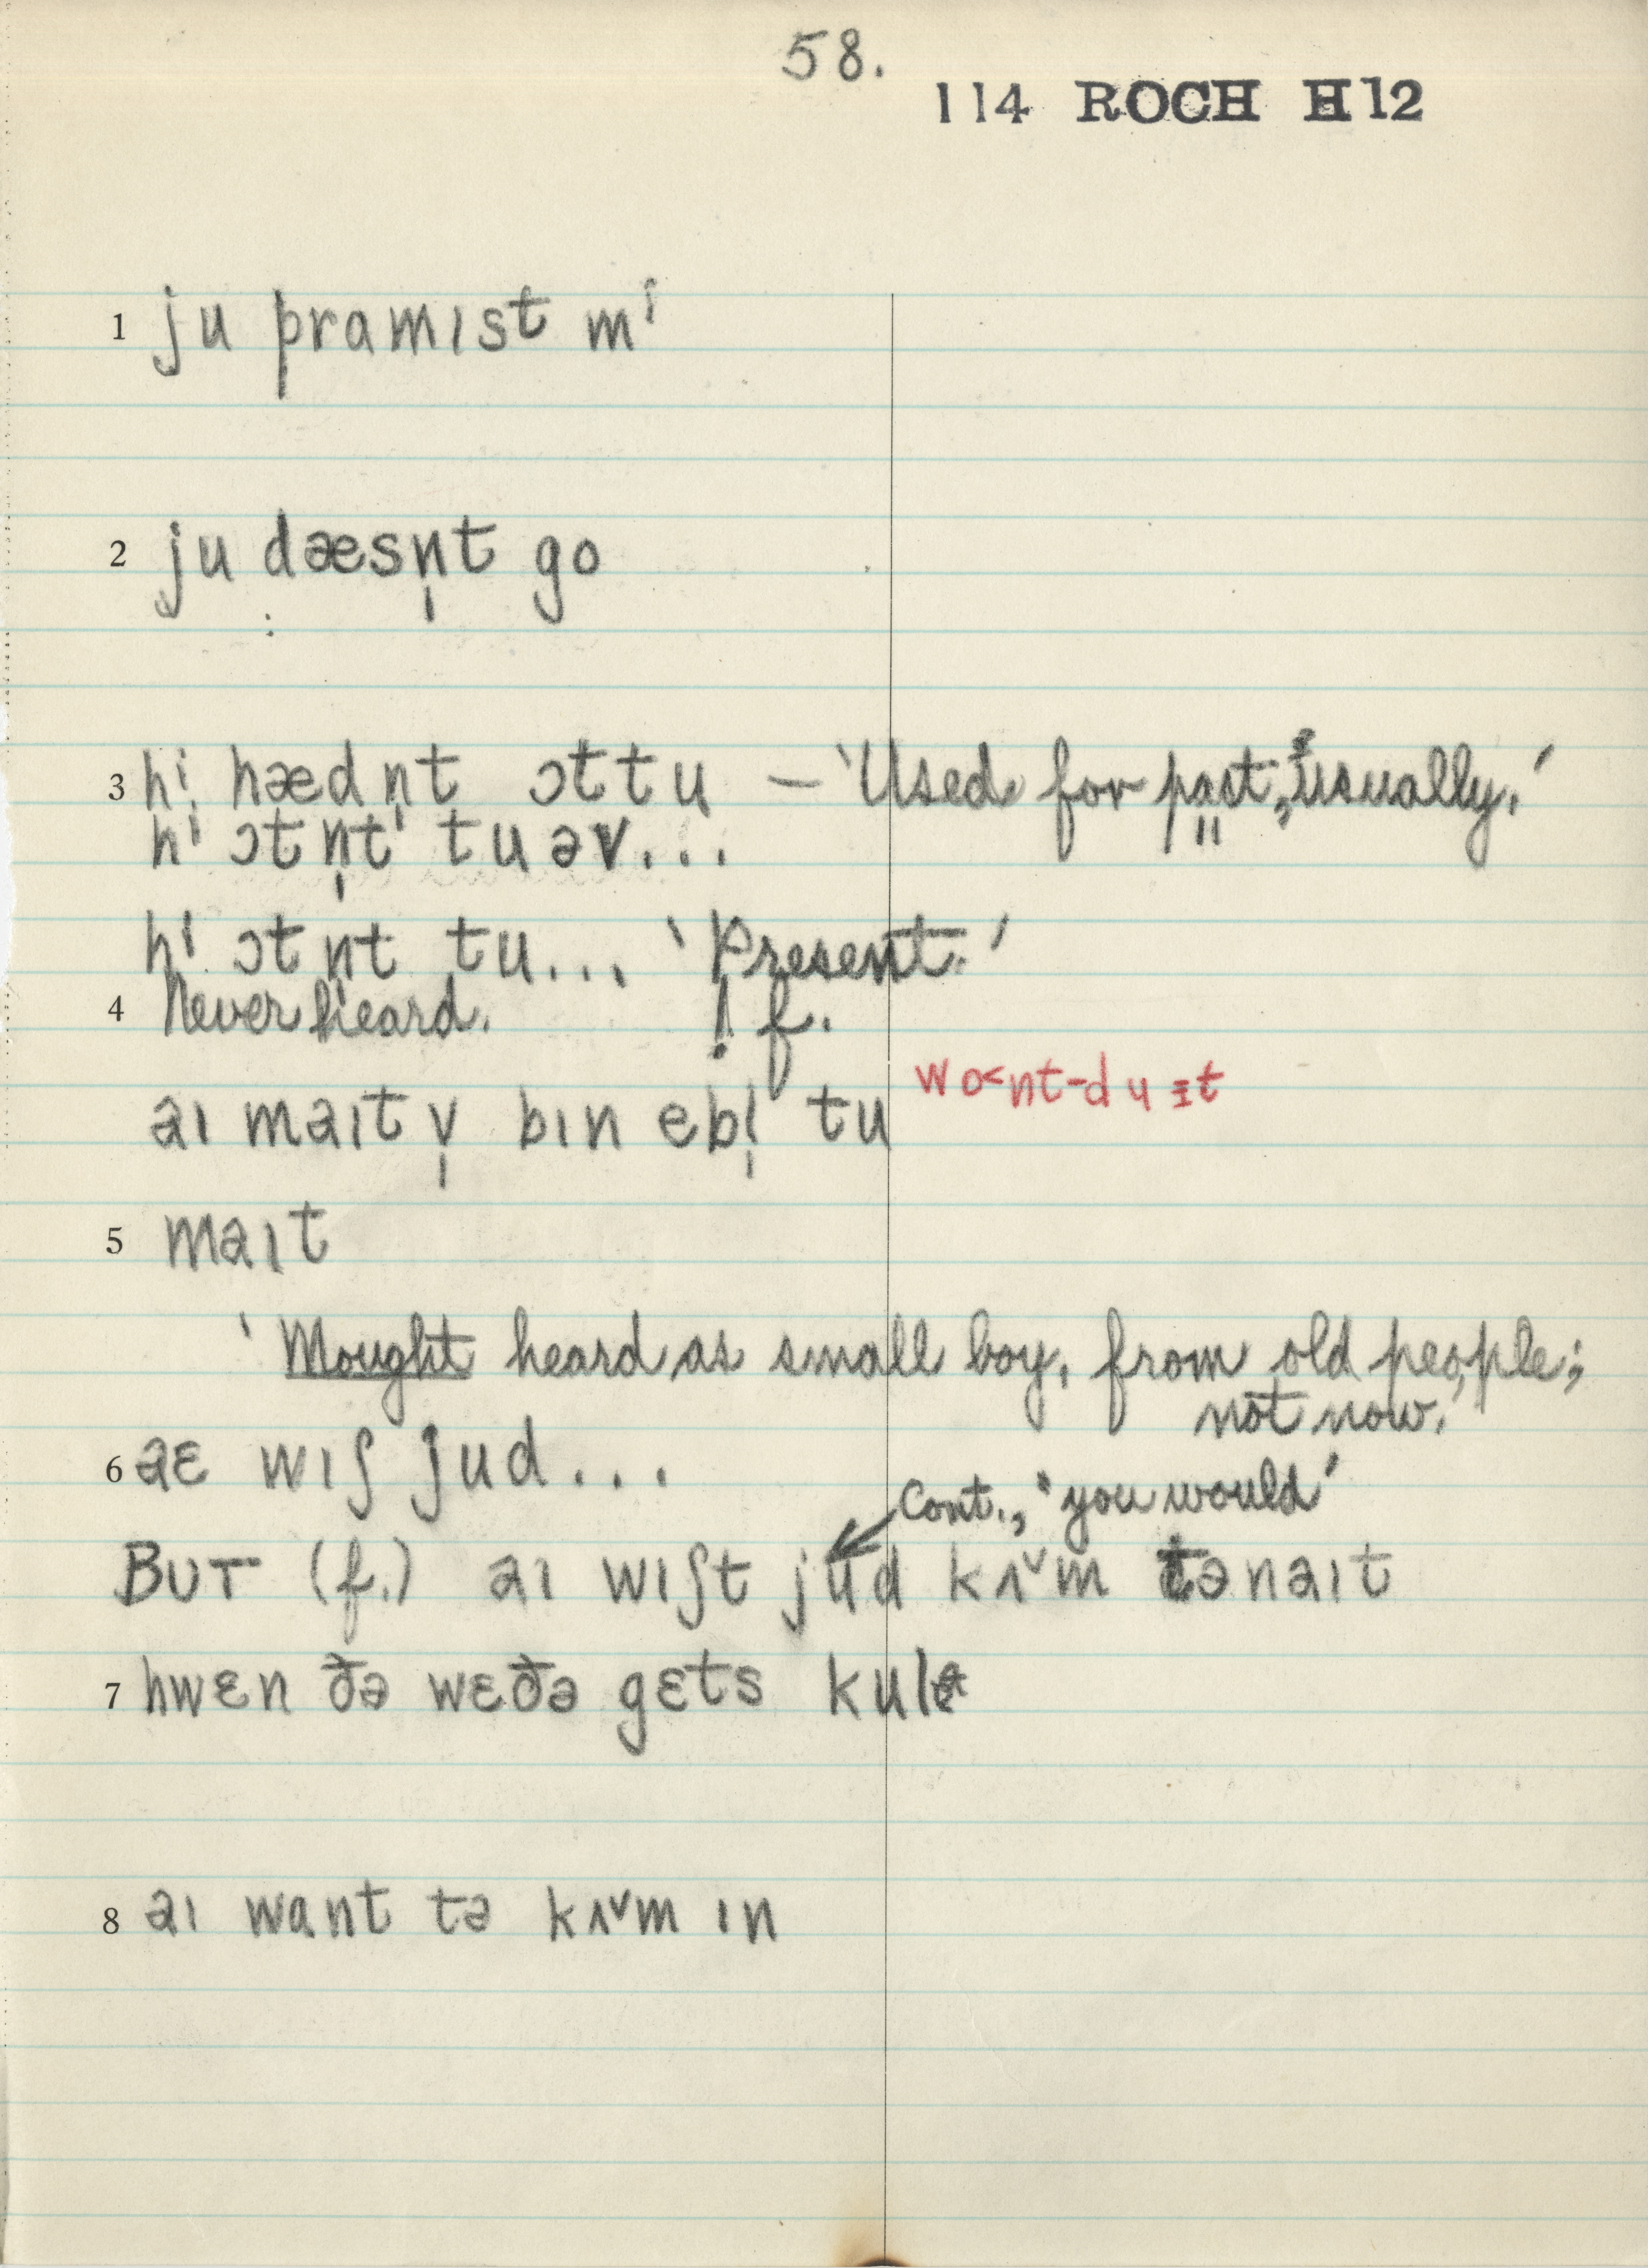 58.
114 ROCH H12
1 ju pramɪst mi
2 ju dæsn̩t go
3 hi hædn̩t ɔt tu – 'Used for past, usually.'
hi ɔtn̩t tu əv...
hi ɔtn̩t tu... 'Present.'
4 Never heard. ! f.
aɪ maɪt v̩ bɪn ebl̩ tu wo˂nt-du ɪt
5 maɪt
'Mought heard as small boy, from old people;
not now.'
6 aɛ wɪʃ jud...
Cont., 'you would'
BUT (f.) aɪ wɪʃt jud kʌ˅m tənaɪt
7 hwɛn ðə wɛðə gɛts kulə
8 aɪ want tə kʌ˅m ɪn